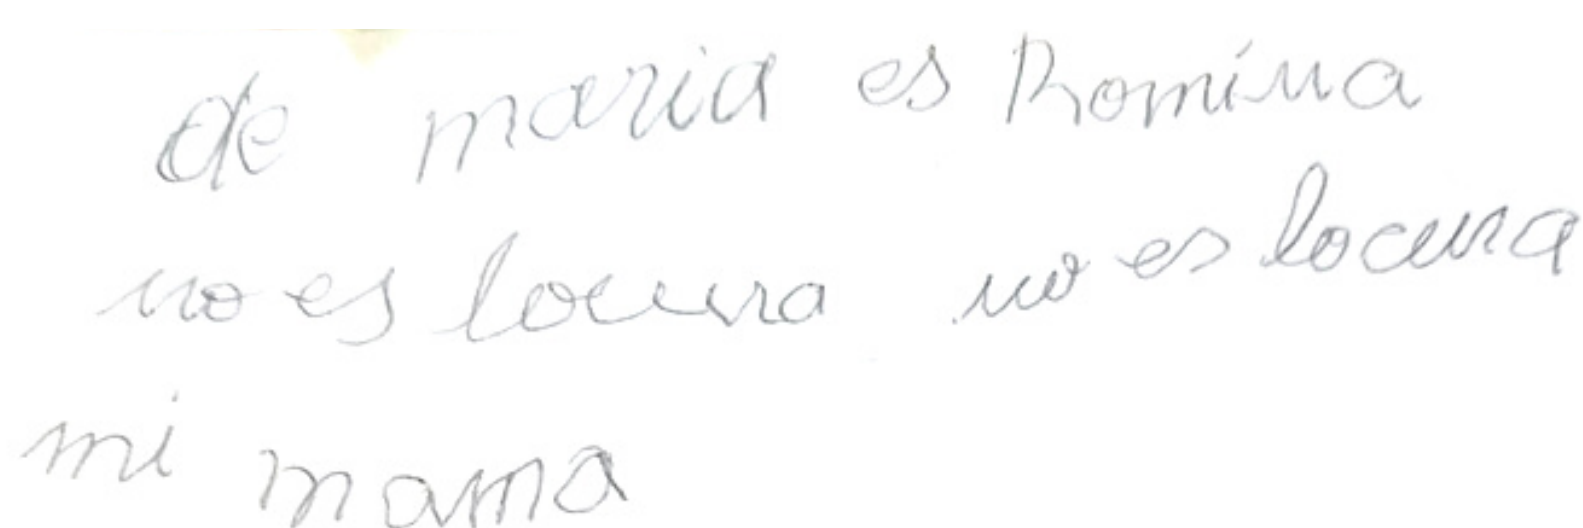 de maria es Romina
no es locura no es locura
mi mama